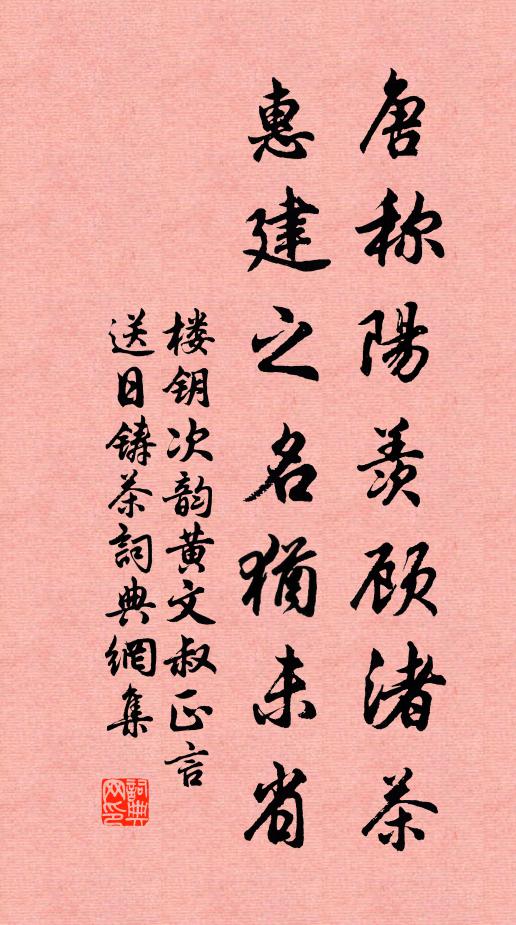 唐称陽羡顾渚茶
惠建之名猶未省
楼钥次韵黄文叔正言
送日铸茶詞典網集
詞典网印